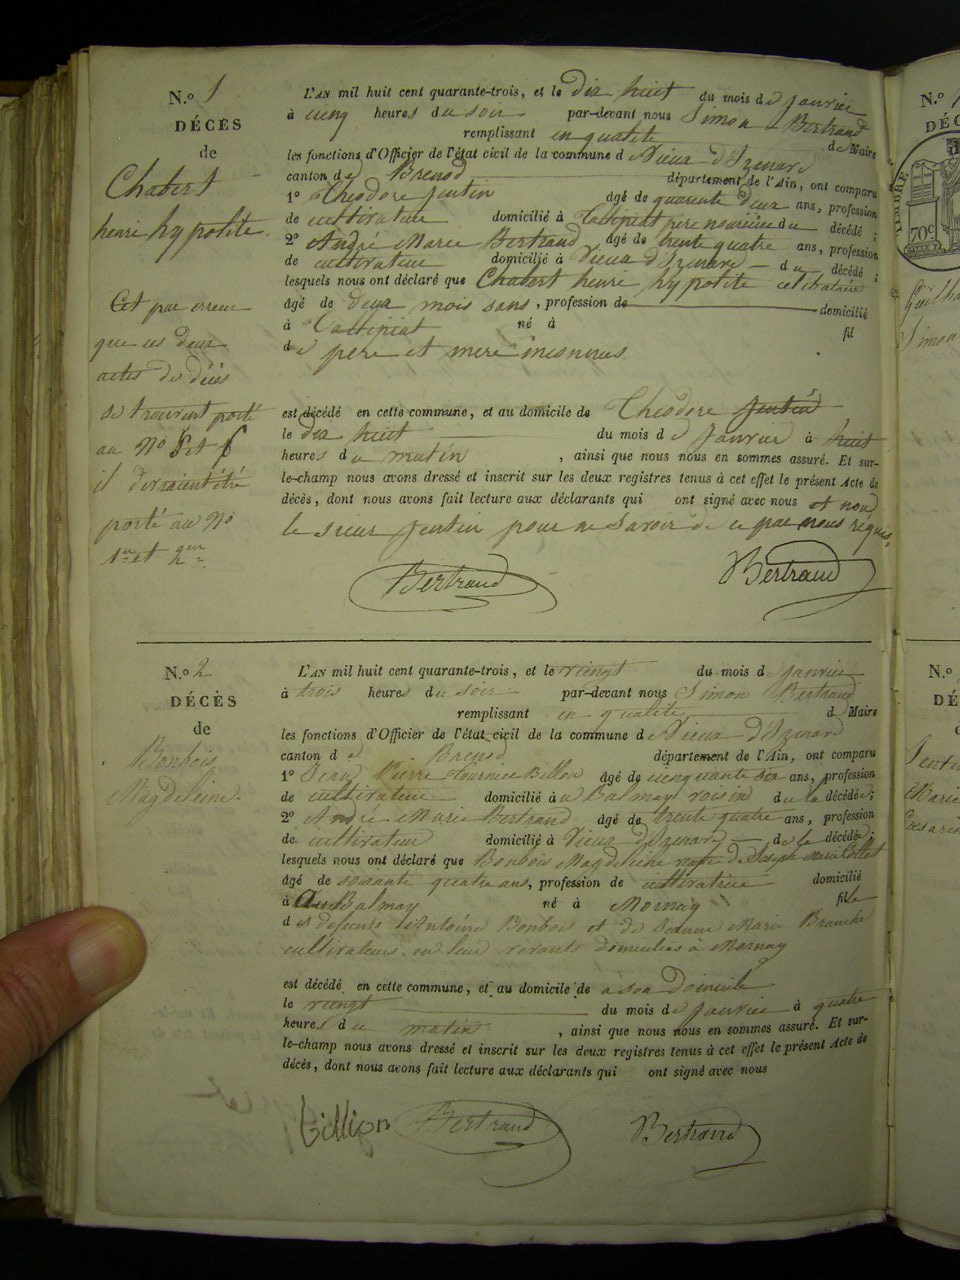 N.o 1
DÉCÈS
de
Chabert
henri hypolite.
Cet par erreur
que ces deux
actes de décès
se trouvent porté
au No 5 et 6
il devraient été
porté au No
1er et 2em
L'AN mil huit cent quarante-trois, et le dix huit du mois de janvier
à cinq heures du soir par-devant nous Simon Bertrand
remplissant en qualité de Maire
les fonctions d'Officier de l'état civil de la commune de Vieux d'Izenave
canton de Brenod département de l'Ain, ont comparu
1o Théodore Juntin âgé de quarante deux ans, profession
de cultivateur domicilié à père nouricier du décédé ;
2o André Marie Bertrand âgé de trente quatre ans, profession
de cultivateur domicilié à Vieux d'Izenave du décédé ;
lesquels nous ont déclaré que Chabert henri hypolite celibataire
âgé de deux mois sans, profession de domicilié
à né à fil
de père et mère inconnus
est décédé en cette commune, et au domicile de Théodore Juntin
le dix huit du mois de janvier à huit
heures du matin, ainsi que nous nous en sommes assuré. Et sur-
le-champ nous avons dressé et inscrit sur les deux registres tenus à cet effet le présent Acte de
décès, dont nous avons fait lecture aux déclarants qui ont signé avec nous et non
le sieur Juntin pour ne savoir de ce par nous requis.
Bertrand Bertrand
N.o 2
DÉCÈS
de
Bonbois
Magdeleine.
L'AN mil huit cent quarante-trois, et le vingt du mois de janvier
à trois heures du soir par-devant nous Simon Bertrand
remplissant en qualité d Maire
les fonctions d'Officier de l'état civil de la commune de Vieux d'Izenave
canton de Brenod département de l'Ain, ont comparu
1o Jean Pierre Billion âgé de cinquante six ans, profession
de cultivateur domicilié au Balmay voisin du la décédée ;
2o André Marie Bertrand âgé de trente quatre ans, profession
de cultivateur domicilié à Vieux d'Izenave de la décédée ;
lesquels nous ont déclaré que Bonbois Magdeleine de Joseph Marie
âgé de soixante quatre ans, profession de cultivatrice domicilié
à au Balmay né à Mornay fille
des defunts Antoine Bonbois et de Jeanne Marie Branche
cultivateurs en leur vivant domiciliés à Mornay
est décédé en cette commune, et au domicile de à son Domicile
le vingt du mois de janvier à quatre
heures du matin, ainsi que nous nous en sommes assuré. Et sur-
le-champ nous avons dressé et inscrit sur les deux registres tenus à cet effet le présent Acte de
décès, dont nous avons fait lecture aux déclarants qui ont signé avec nous
billion Bertrand Bertrand
N.o
DÉC
TIMBRE
70c
Simon
N.o
DÉ
Marie